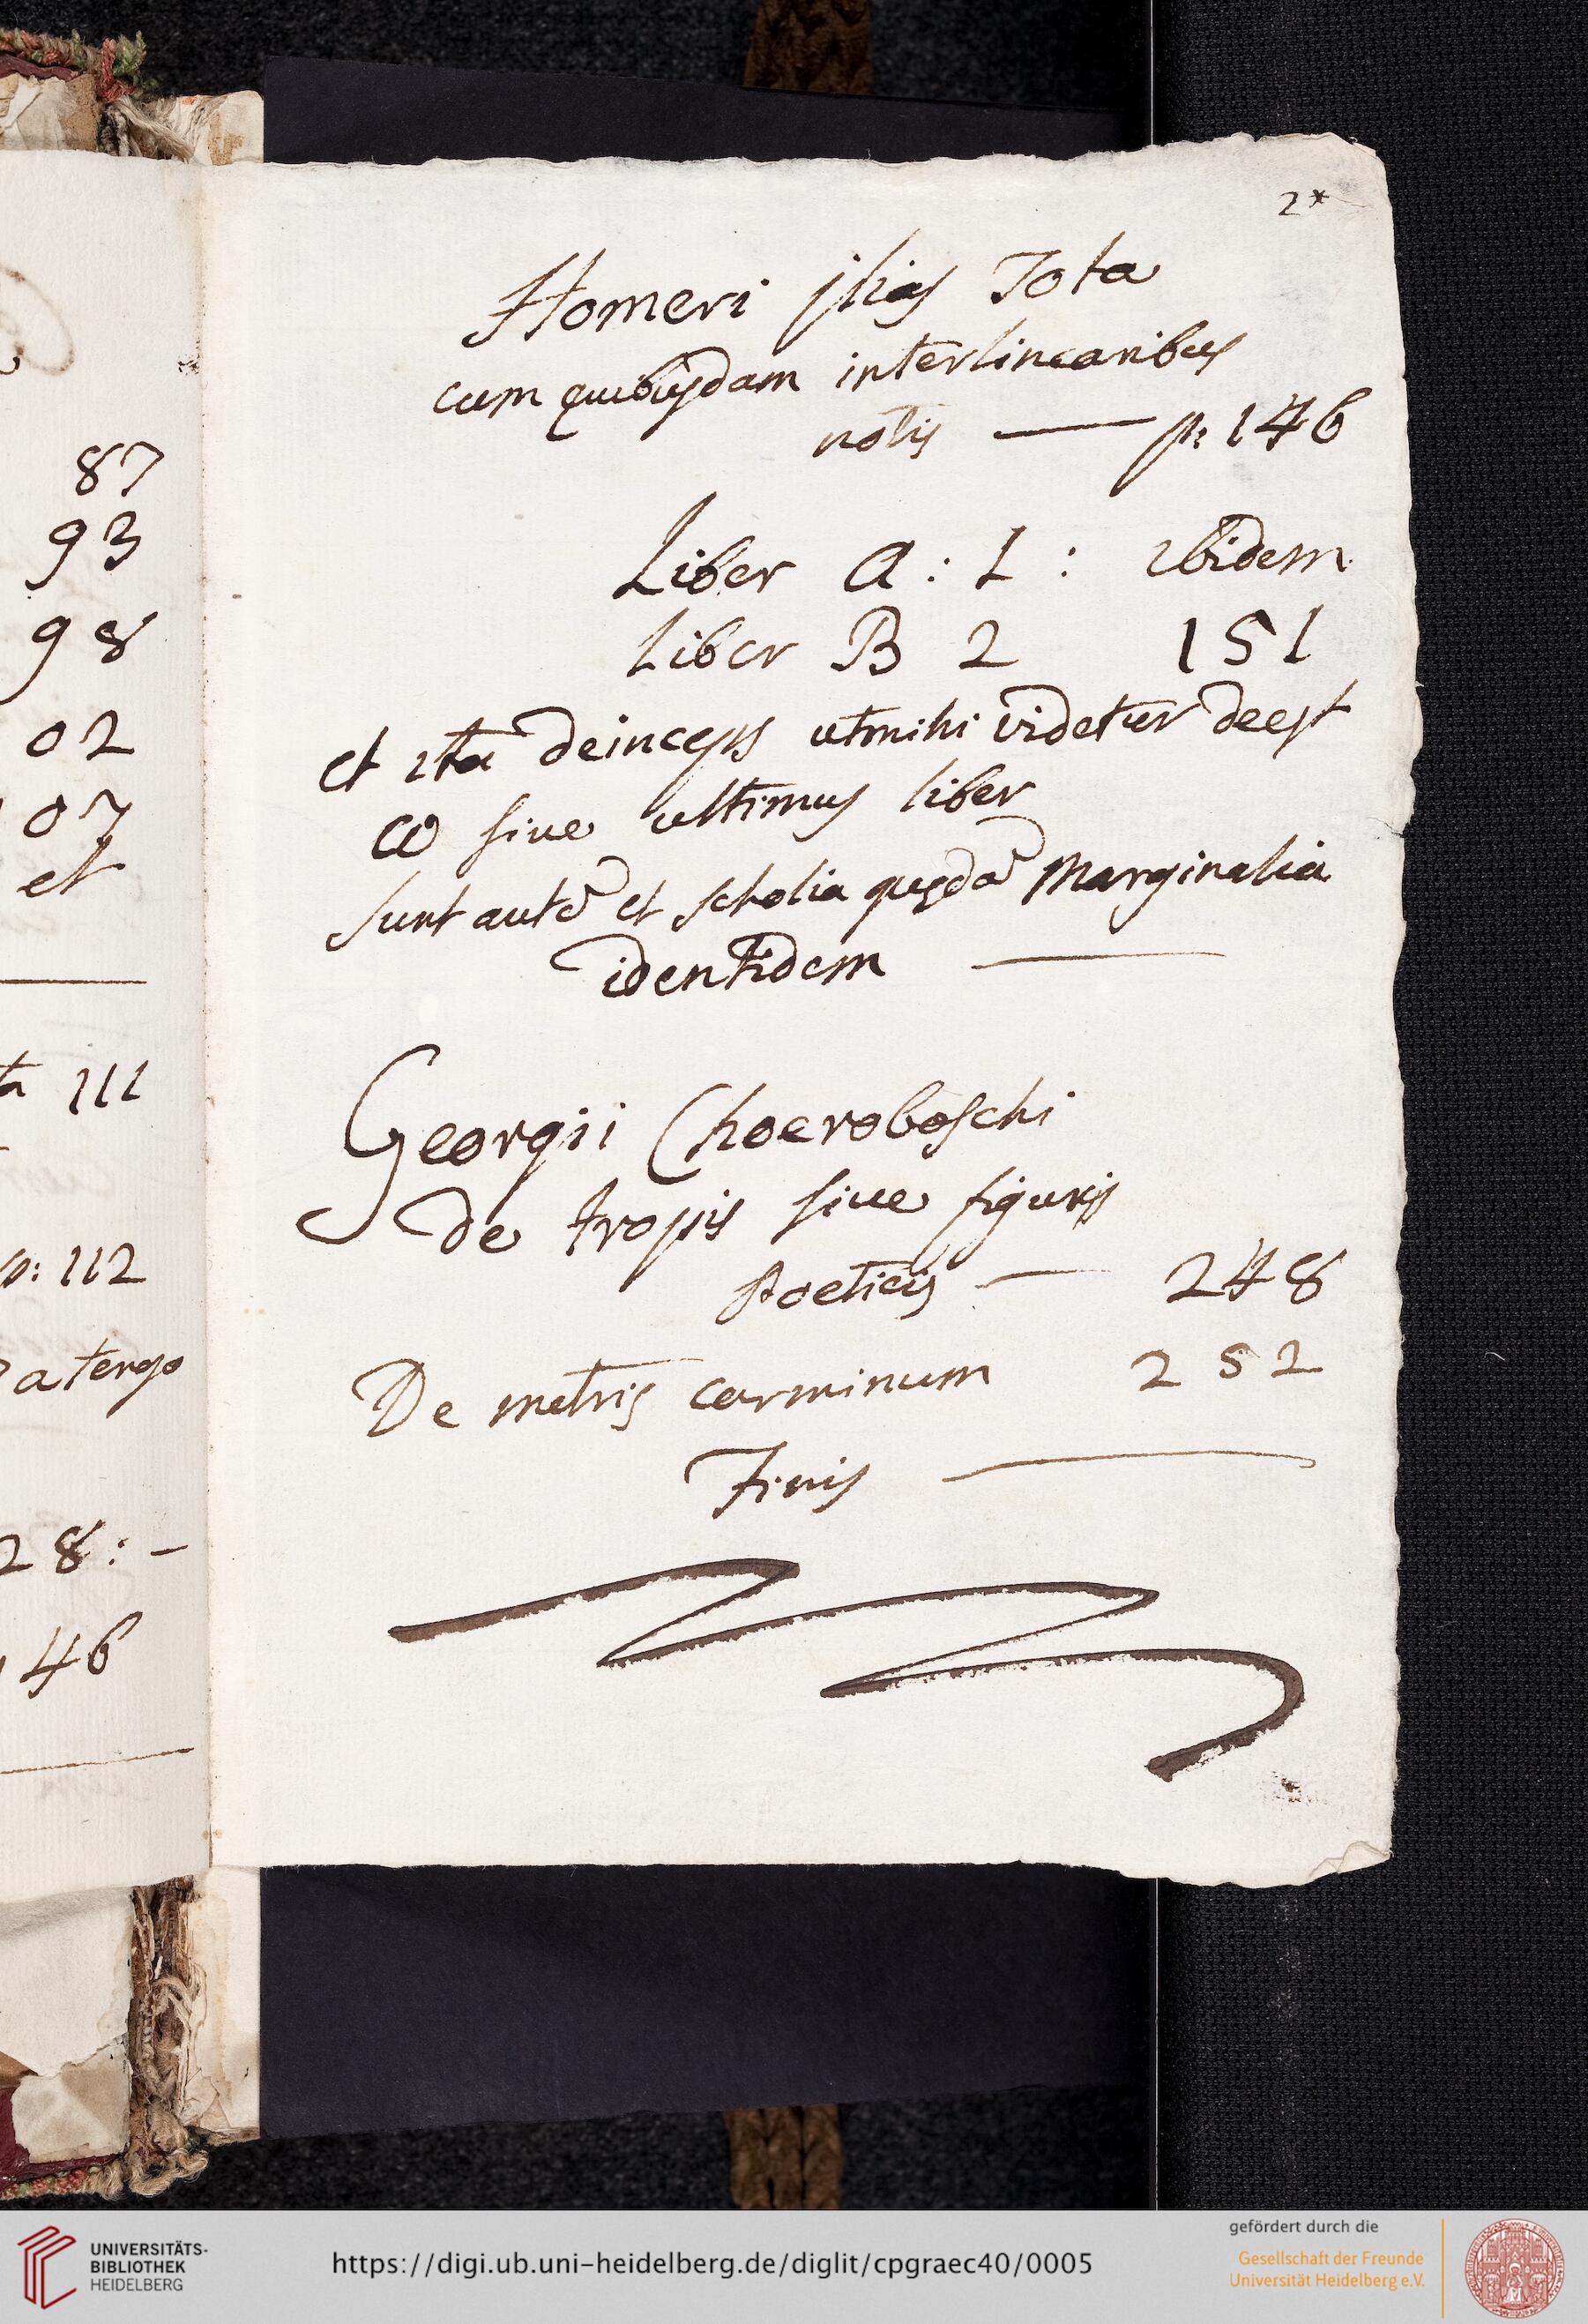 87
93
98
02
07
et
111
p: 112
a tergo
28: -
146
2*
Homeri ilias Tota
cum quibusdam interlinearibus
notis — p: 146
Liber A : 1 : ibidem
Liber B 2 151
et ita deinceps ut mihi videtur deest
ω siue ultimus liber
sunt autē et scholia quędā marginalia
identidem —
Georgii Choeroboschi
de tropis siue figuris
Poeticis — 248
De metris carminum 252
Finis —
UNIVERSITÄTS-
BIBLIOTHEK
HEIDELBERG
https://digi.ub.uni-heidelberg.de/diglit/cpgraec40/0005
gefördert durch die
Gesellschaft der Freunde
Universität Heidelberg e.V.